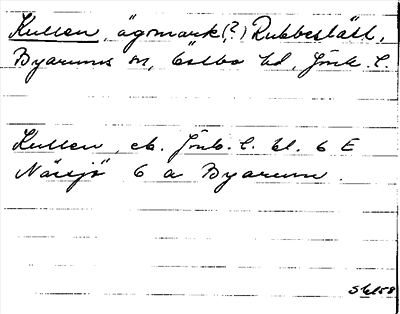 Kullen, ägomark(?) Rubbeslätt,
Byarums sn, Östbo hd, Jönk. l.
Kullen, ek. Jönk. l. bl. 6 E
Nässjö 6 a Byarum.